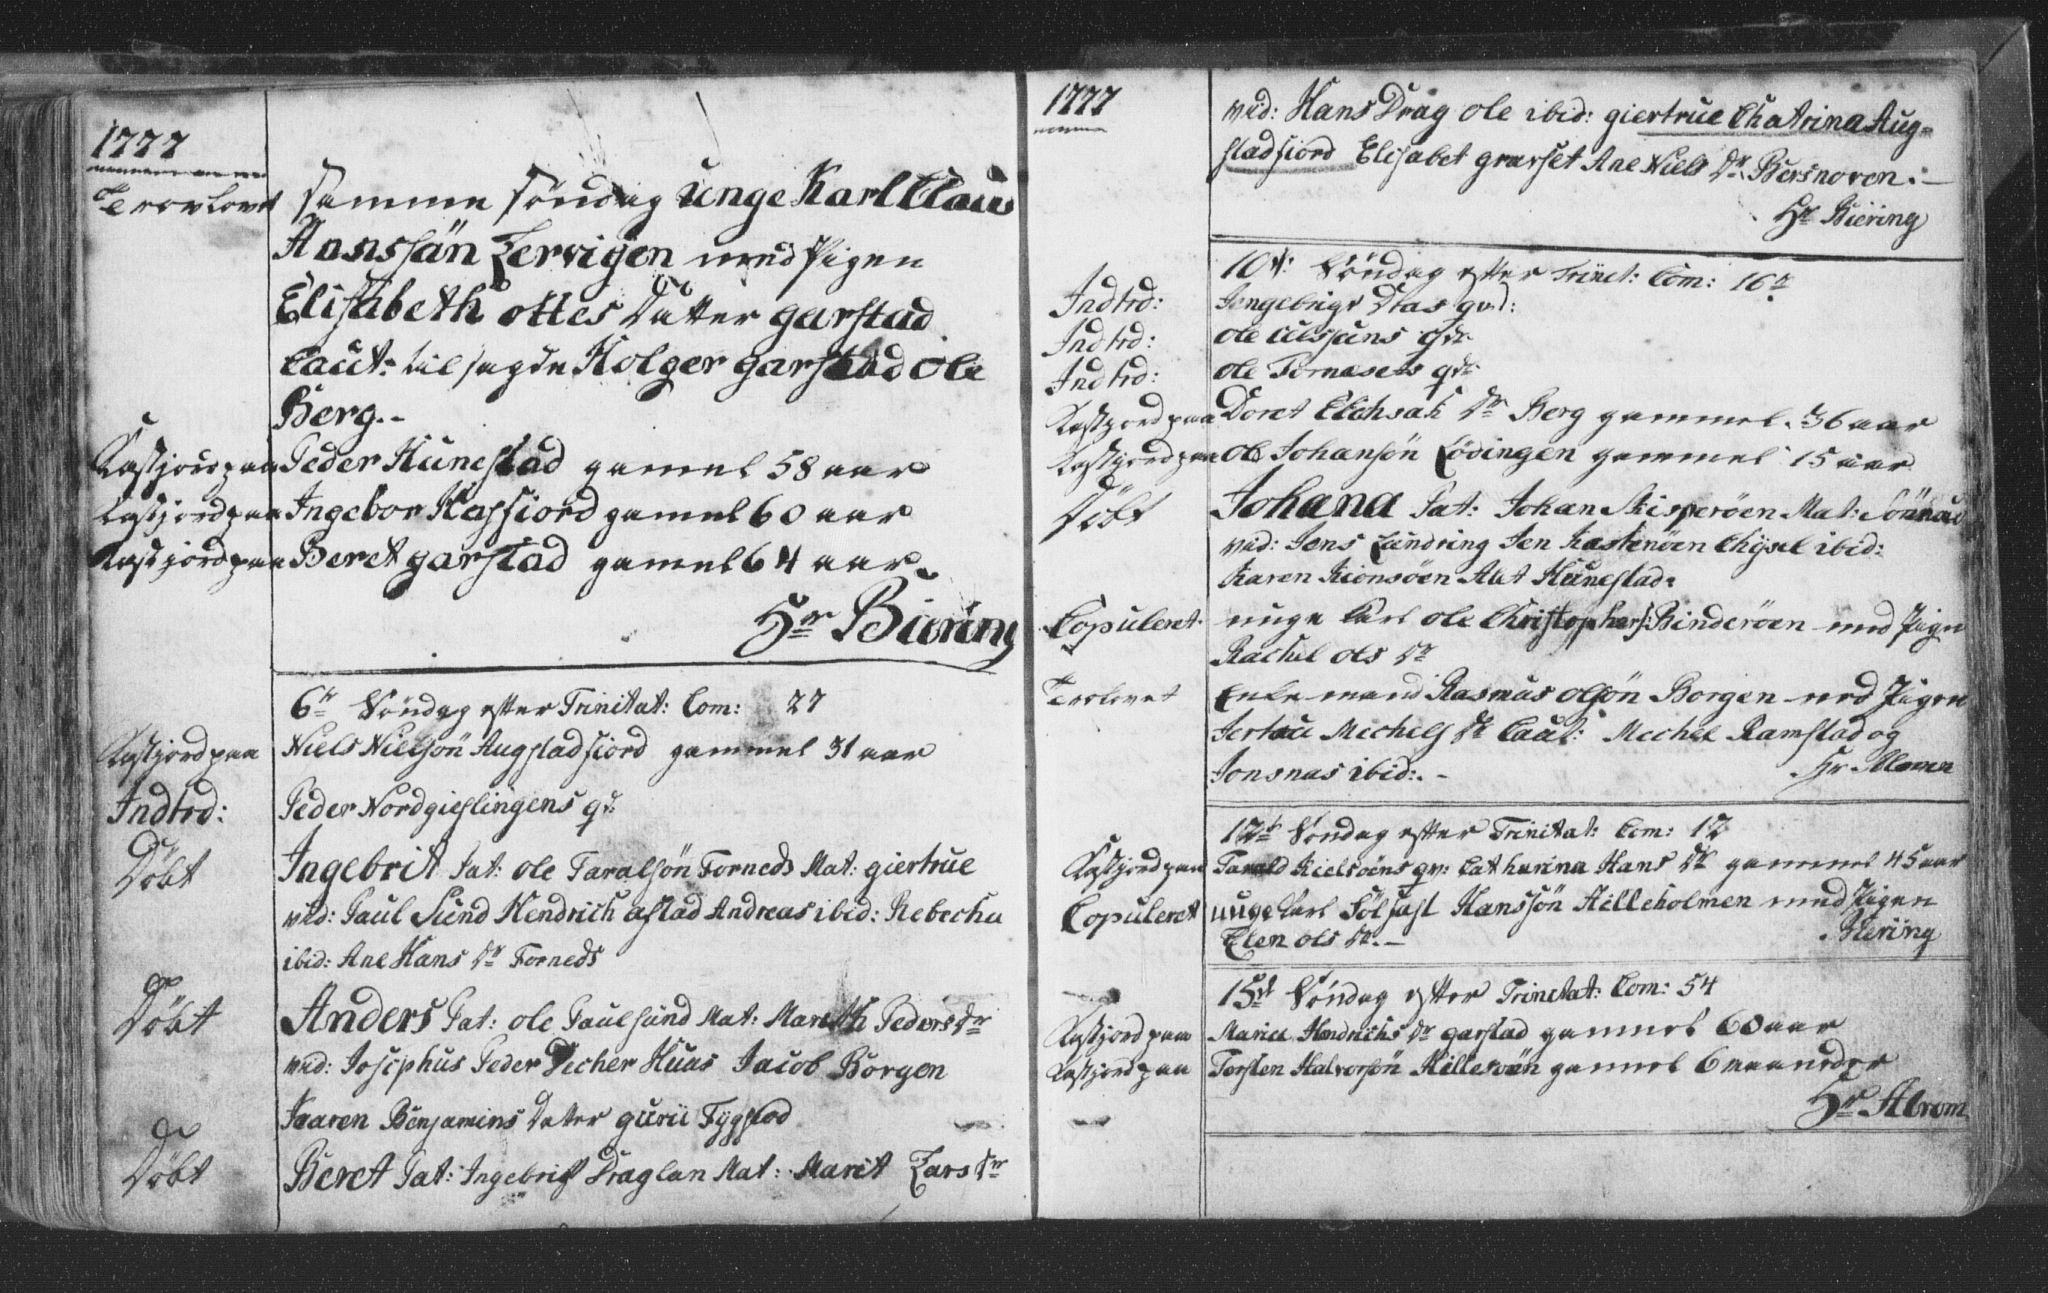 1777
Trovlovet samme söndag unge Karl Claus
Hanssön Lervigen med Pigen
Elisabeth ottes Datter garstad
Caut: tilsagde Holger garstad Ole
Berg.-
Kastjord paa Peder Hunestad gamel 58 aar
Kastjord paa Ingebor Kasfiord gamel 60 aar
Kastjord paa Beret garstad gamel 64 aar
Hr Biering
6te Söndag efter Trinitat: Com: 27
Kastjord paa Niels Nielsön Augstadfiord gammel 31 aar
Indtrd: Peder Nordgieslingens qv:
Döbt Ingebrit Pat: ole Taralsön Forneds Mat: giertrue
vid: Paul Sund Hendrich astad Andreas ibid: Rebecha
ibid: Ane Hans Dr Forneds
Döbt Anders Pat: ole Paulsund Mat: Mareth Peders Dr
vid: Josephus Peder Jacob Borgen
Kaaren Benjamins Dater gurü
Döbt Beret Pat: Ingebrigt Draglan Mat: Marit Lars Dr
1777
vid: Hans Drag ole ibid: giertrue Chatrina Aug-
stadfiord Elisabet grasset Ane Niels Dr
Hr Biering
10de Söndag efter Trinit: Com: 16
Indtrd: Jngebrigt qvd:
Indtrd: ole qv:
Indtrd: ole Fornesets qv:
Kastjord paa Doret Dr Berg gammel 36 aar
Kastjord paa ole Johansön Lödingen gammel 15 aar
Döbt Johana Pat: Johan Mat:
vid: Jens Jen ibid:
Karen Hunestad
Copuleret unge Karl ole Christophers: Binderöen med Pigen
Rachel ols Dr
Trolovet Enkemand Rasmus olsön Borgen med Pigen
Michels Dr Caut: Michel Ramstad og
Jonsnas ibid:. -
Hr
12te Söndag efter Trinitat: Com: 12
Kastjord paa Tarald qv: Catharina Hans Dr gammel 45 aar
Copuleret unge Karl Hanssön Hilleholmen med Pigen
Elen ols Dr. -
Biering
15de Söndag efter Trinitat: Com: 54
Kastjord paa Maria Hendrichs Dr garstad gammel 60 aar
Kastjord paa Torsten Halvorsön gammel 6 maaneder
Hr